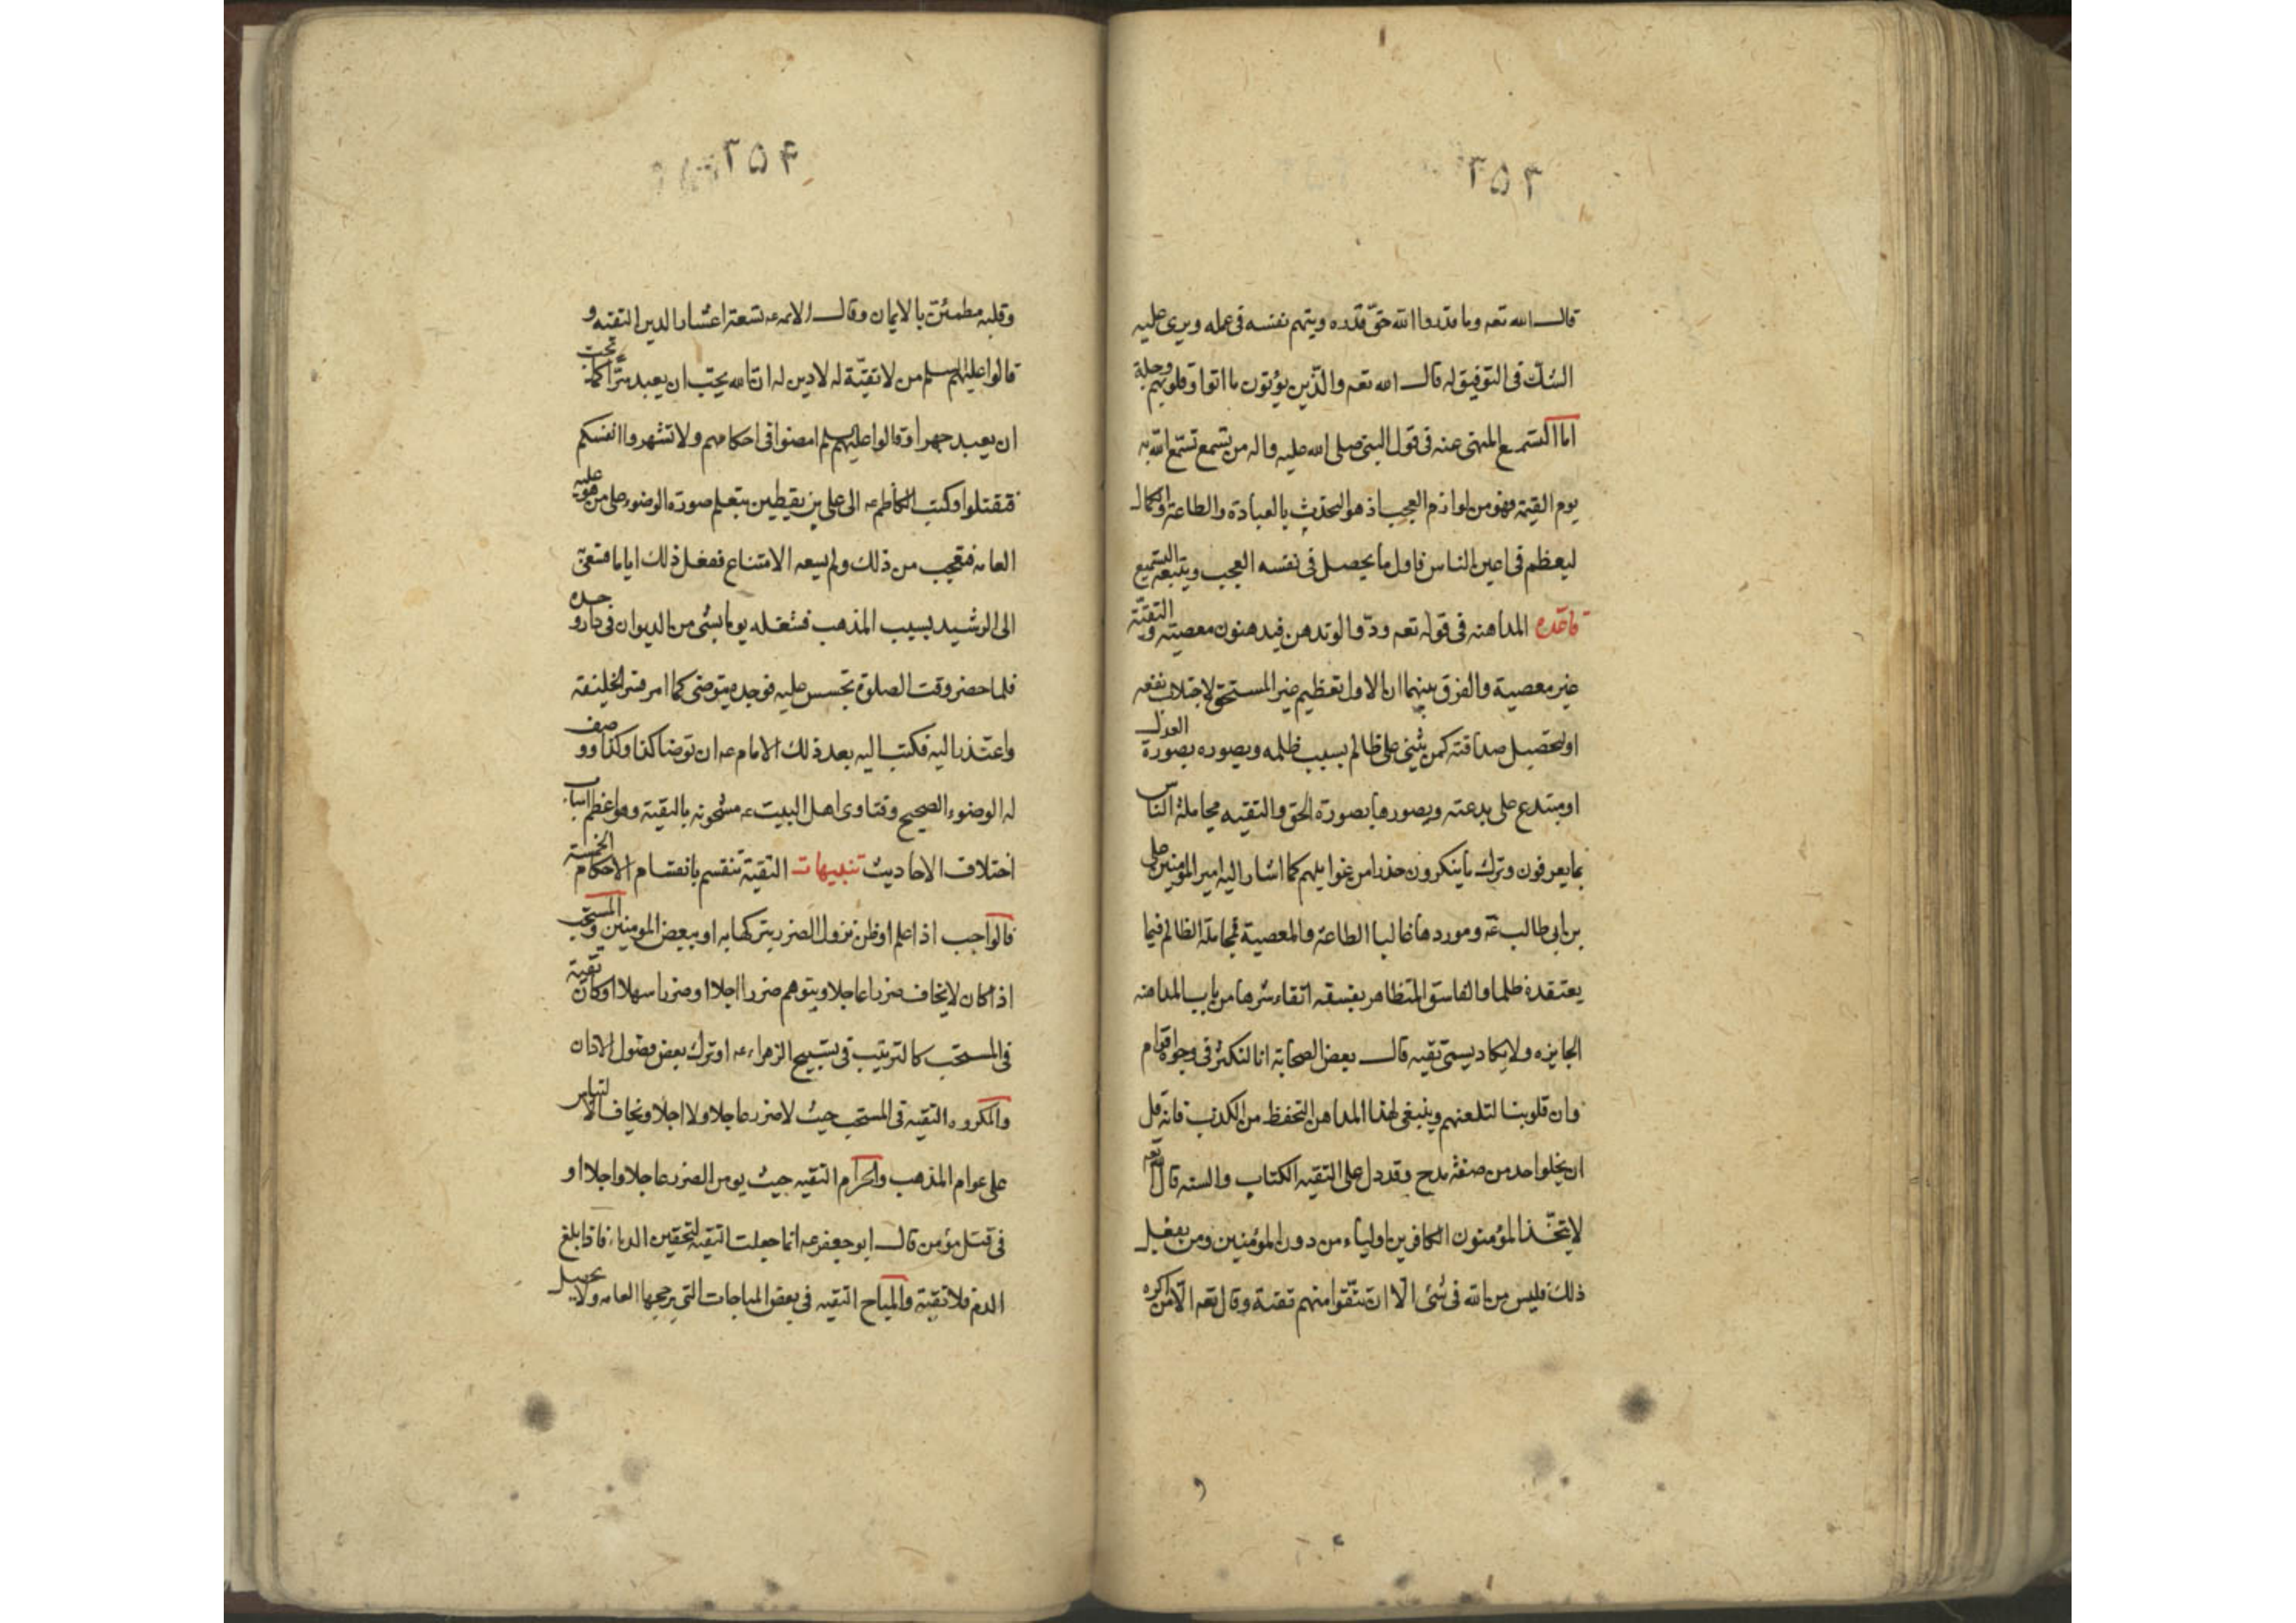 ٢٥٣
قال الله تعه وما قدروا الله حقّ قدره ويتهم نفسه فى عمله ويرى عليه
الشك فى التوفيق له قال الله تعه والذّين يؤتون ما اتوا وقلوبهم وجلة
اما التسميع المنهى عنه فى قول النبى صلى الله عليه واله من تسمع تسمّع الله به
يوم القيمة فهو من لوازم العجب اذ هو التحدث بالعبادة والطاعة والكمال
ليعظم فى اعين الناس فاول ما يحصل فى نفسه العجب ويتبعه التسميع
قاعده المداهنه فى قوله تعه ودّوا لو تدهن فيدهنون معصيته والتقيّة
غير معصية والفرق بينهما ان الاول تعظيم غير المستحق لاجتلاب نفعه
او لتحصيل صداقته كمن يثنى على ظالم بسبب ظلمه ويصوره بصورة العدل
او مبتدع على بدعته ويصورها بصورة الحق والتقيه مجاملة الناس
بما يعرفون وترك ما ينكرون حذرا من غوايلهم كما اشار اليه امير المؤمنين على
بن ابى طالب عه وموردها غالبا الطاعة والمعصية فمجاملة الظالم فيما
يعتقده ظلما والفاسق المتظاهر بفسقه اتقاء شرها من باب المداهنه
الجايزه ولا يكاد يسمى تقيه قال بعض الصحابة انا لنكشر فى وجوه اقوام
وان قلوبنا لتلعنهم وينبغى لهذا المداهن التحفظ من الكذب فانه قل
ان يخلو احد من صفة مدح وقد دل على التقيه الكتاب والسنه قال تعه
لا يتخّذ المؤمنون الكافرين اولياء من دون المؤمنين ومن يفعل
ذلك فليس من الله فى شئى الا ان تتّقوا منهم تقية وقال تعه الا من اكره
٢٥۴
وقلبه مطمئن بالايمان وقال الائمه عه تسعة اعشار الدين التقيه و
قالوا عليهم السلم من لا تقيّة له لا دين له ان الله يحبّ ان يعبد سرّا كما يحب
ان يعبد جهرا وقالوا عليهم السلم امضوا فى احكامهم ولا تشهروا انفسكم
فتقتلوا وكتب الكاظم عه الى على بن يقطين بتعلم صورة الوضوء على من هو عليه
العامه فتعجب من ذلك ولم يسعه الامتناع ففعل ذلك اياما فسعى
الى الرشيد بسبب المذهب فشغله يوما بشئى من الديوان فى دار وحده
فلما حضر وقت الصلوة تجسس عليه فوجده يتوضى كما امر فسر الخليفة
واعتذر اليه فكتب اليه بعد ذلك الامام عه ان توضا كذا وكذا ووصف
له الوضوء الصحيح وفتاوى اهل البيت عه مشحونه بالتقية وهو اعظم اسباب
اختلاف الاحاديث تنبيهات التقية تنقسم بانقسام الاحكام الخمسة
فالواجب اذا علم او ظن نزول الضرر بتركها به او ببعض المومنين والمستحب
اذا كان لا يخاف ضررا عاجلا ويتوهم ضررا اجلا او ضررا سهلا او كان تقية
فى المستحب كالترتيب فى تسبيح الزهراء عه او ترك بعض فصول الاذان
والمكروه التقيه فى المستحب حيث لا ضرر عاجلا ولا اجلا ويخاف الالتباس
على عوام المذهب والحرام التقيه حيث يومن الضرر عاجلا واجلا او
فى قتل مؤمن قال ابو جعفر عه انما جعلت التقيه لتحقين الدماء فاذا بلغ
الدم فلا تقية والمباح التقيه فى بعض المباحات التى يرجحها العامه ولا يحصل